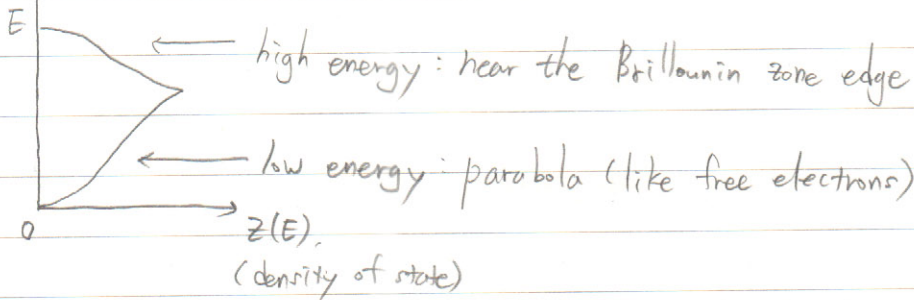 E
high energy : near the Brillounin zone edge
low energy : parabola (like free electrons)
0
Z(E).
(density of state)